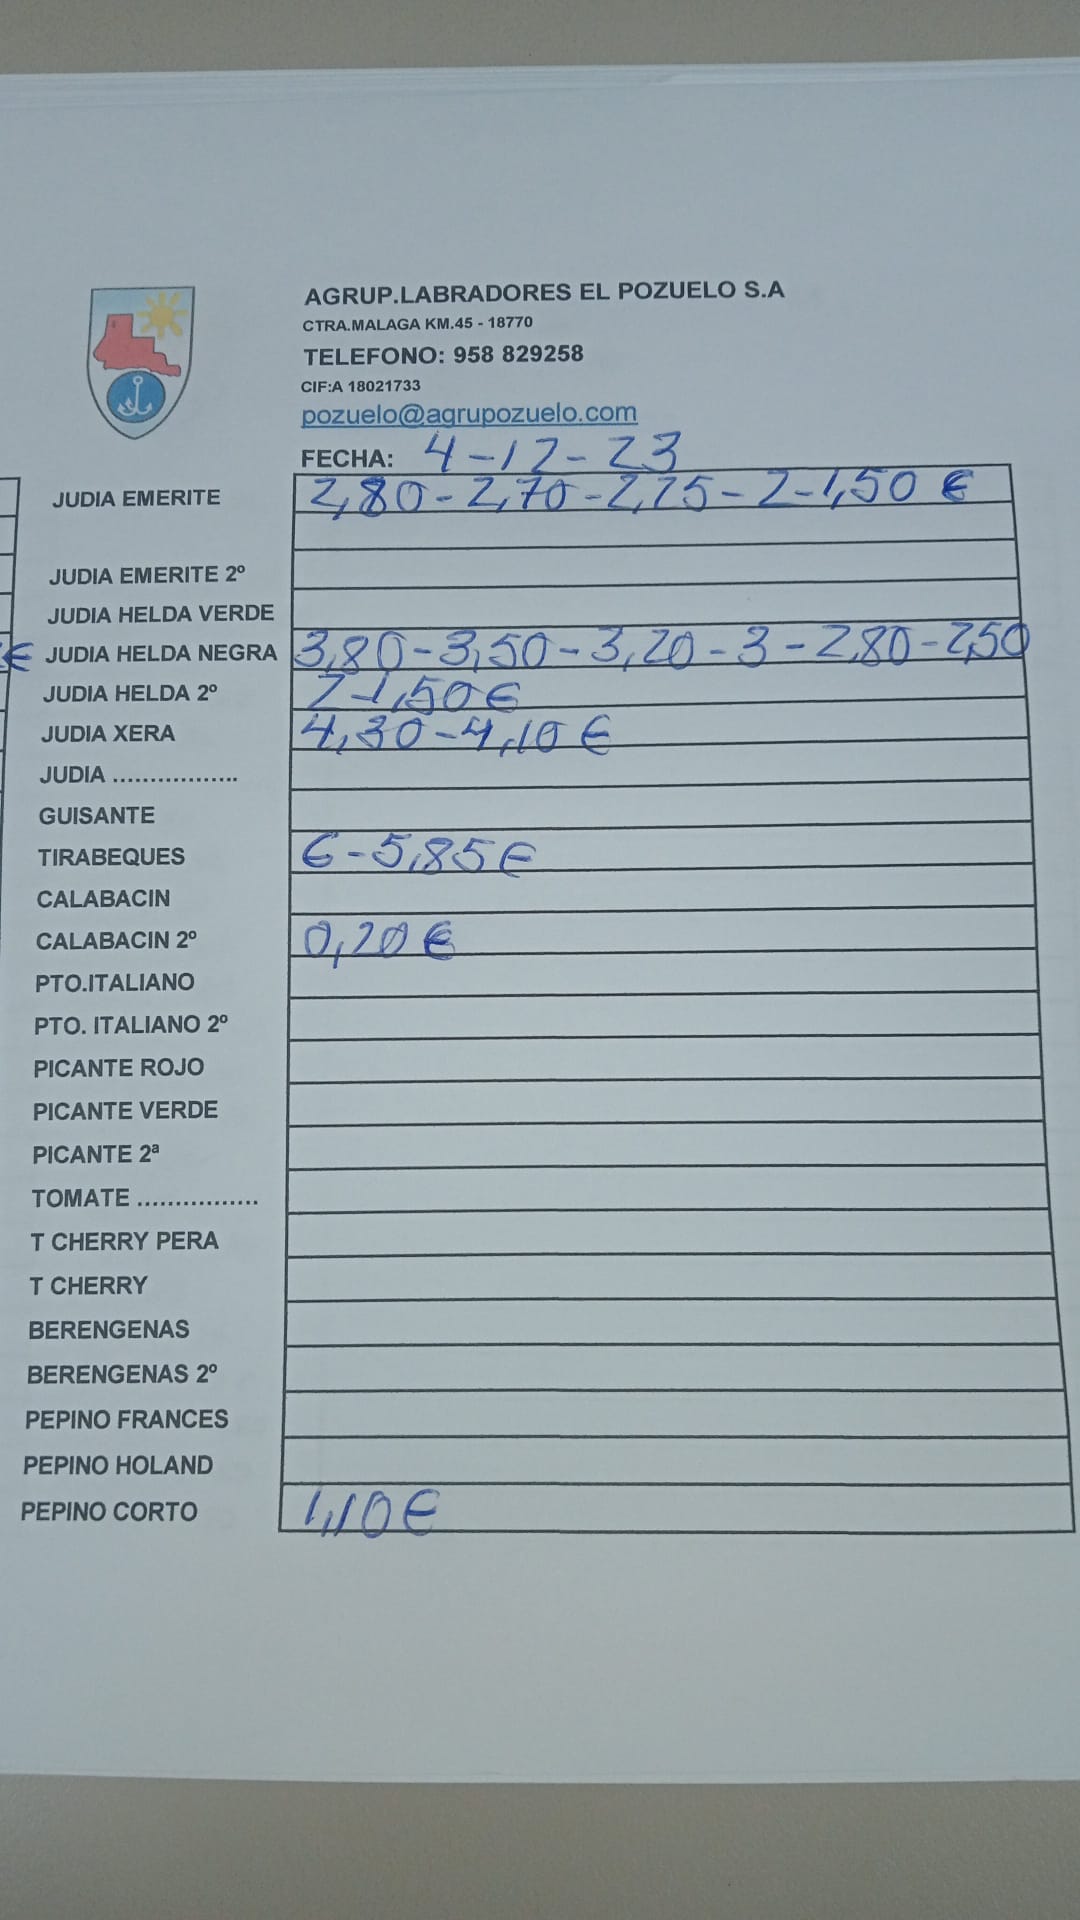 AGRUP.LABRADORES EL POZUELO S.A
CTRA.MALAGA KM.45 - 18770
TELEFONO: 958 829258
CIF:A 18021733
pozuelo@agrupozuelo.com
FECHA: 4-12-23
JUDIA EMERITE 2,80-2,70-2,25-2-1,50 €
JUDIA EMERITE 2º
JUDIA HELDA VERDE
€ JUDIA HELDA NEGRA 3,80-3,50-3,20-3-2,80-2,50
JUDIA HELDA 2º 2-1,50€
JUDIA XERA 4,30-4,10 €
JUDIA .................
GUISANTE
TIRABEQUES 6-5,85€
CALABACIN
CALABACIN 2º 0,20€
PTO.ITALIANO
PTO. ITALIANO 2º
PICANTE ROJO
PICANTE VERDE
PICANTE 2ª
TOMATE ................
T CHERRY PERA
T CHERRY
BERENGENAS
BERENGENAS 2º
PEPINO FRANCES
PEPINO HOLAND
PEPINO CORTO 1,10€